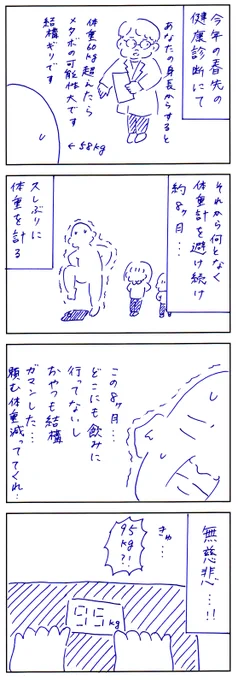 今年の春先の
健康診断にて
あなたの身長からすると
体重60kg超えたら
メタボの可能性大です
結構ギリです
←58kg
それから何となく
体重計を避け続け
約8ヶ月…
久しぶりに
体重を計る
この8ヶ月…
どこにも飲みに
行ってないし
おやつも結構
ガマンした…
頼む体重減っててくれ…
無慈悲…!!
きゃ…
95
kg
?!
95
kg